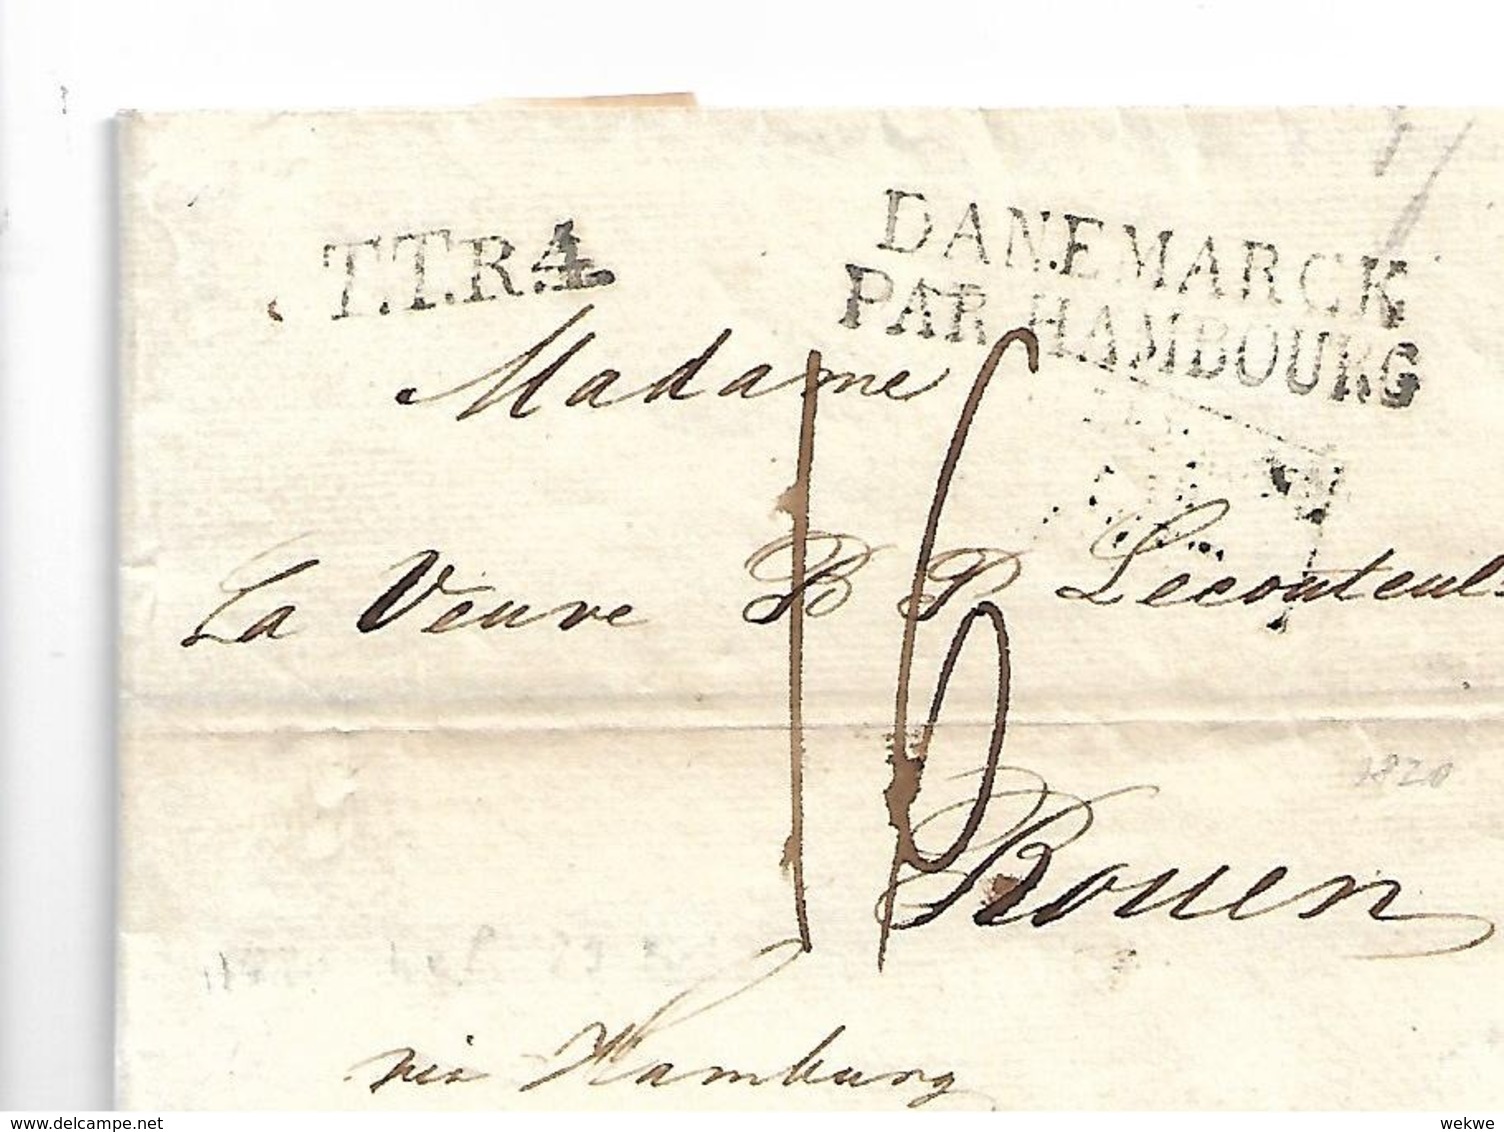 T.T.R.4.
DANEMARCK
PAR HAMBOURG
Madame
16
La Veuve B P Lecouteul
1820
Rouen
via Hamburg
delcampe.net
wekwe